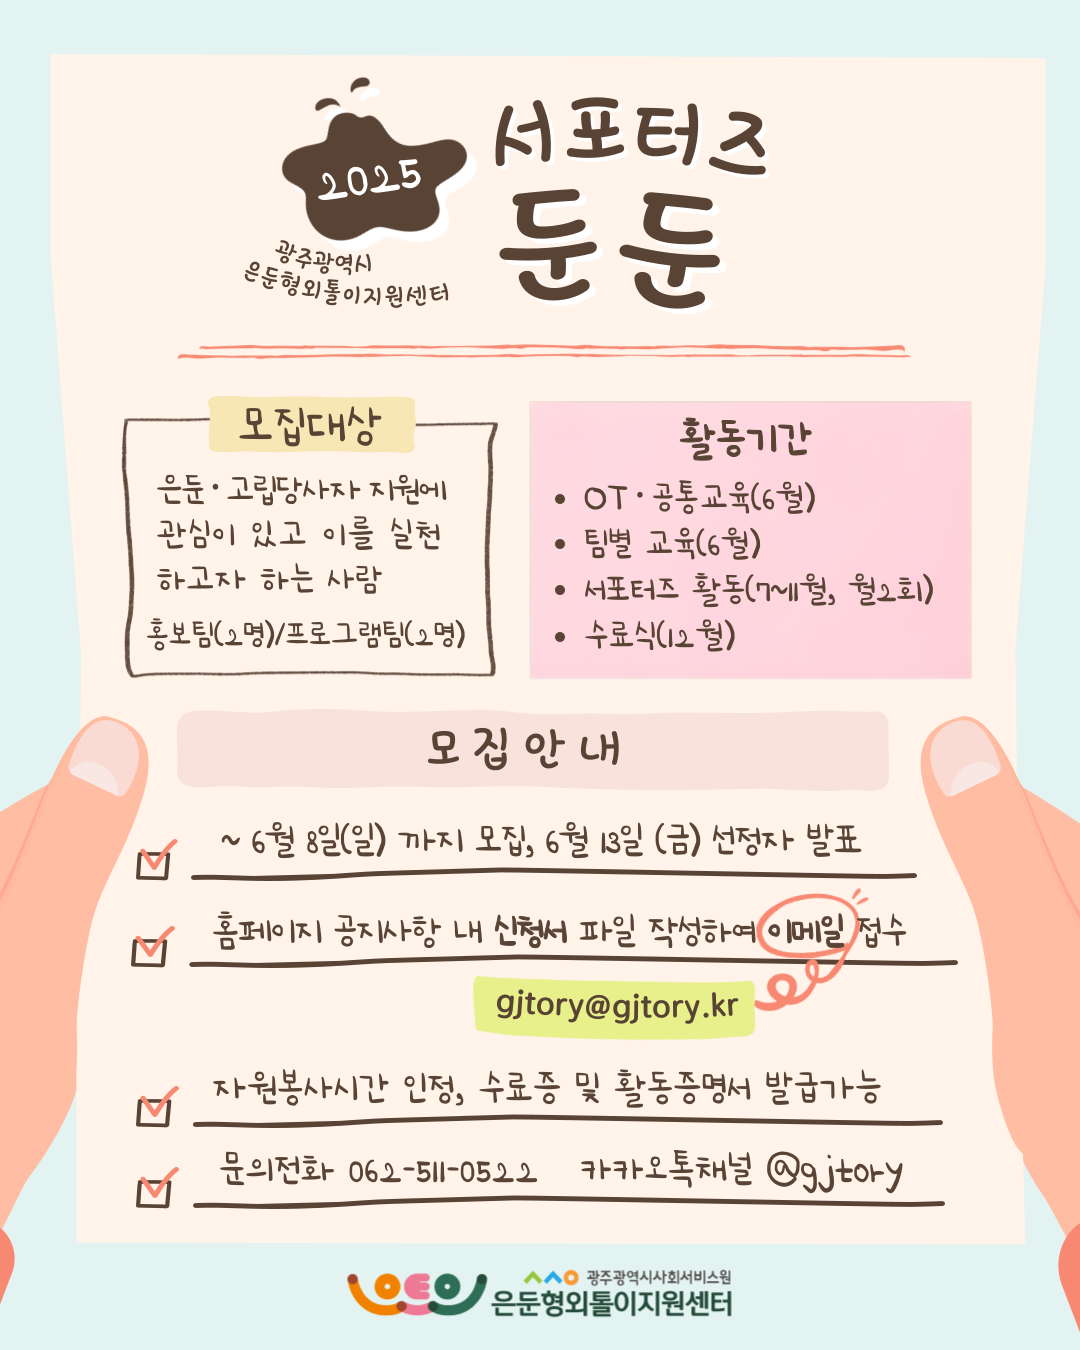 2025
광주광역시
은둔형외톨이지원센터
서포터즈
둔둔
모집대상
은둔·고립당사자 지원에
관심이 있고 이를 실천
하고자 하는 사람
홍보팀(2명)/프로그램팀(2명)
활동기간
• OT·공통교육(6월)
• 팀별 교육(6월)
• 서포터즈 활동(7~11월, 월2회)
• 수료식(12월)
모집안내
~ 6월 8일(일) 까지 모집, 6월 13일 (금) 선정자 발표
홈페이지 공지사항 내 신청서 파일 작성하여 이메일 접수
gjtory@gjtory.kr
자원봉사시간 인정, 수료증 및 활동증명서 발급가능
문의전화 062-511-0522 카카오톡채널 @gjtory
광주광역시사회서비스원
은둔형외톨이지원센터